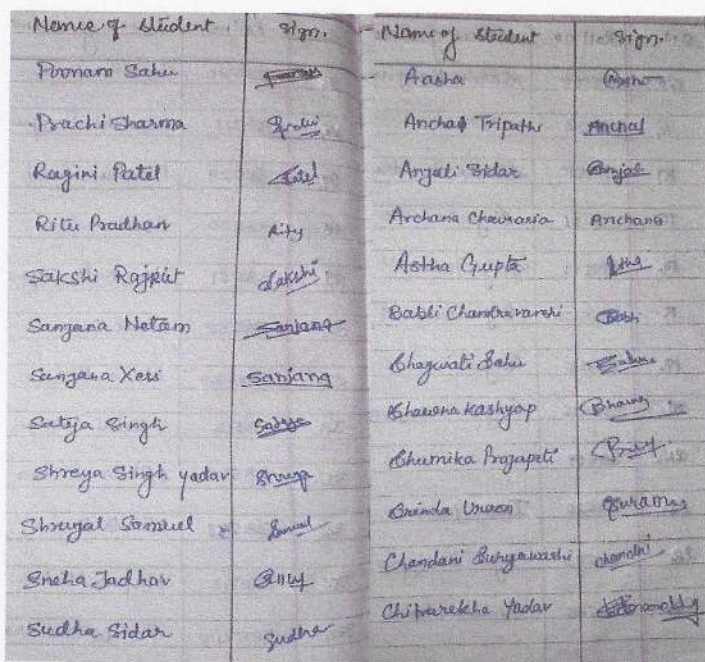 Name of Student Sign.
Poonam Sahu
Prachi Sharma
Ragini Patel Patel
Ritu Pradhan Ritu
Sakshi Rajput Sakshi
Sanjana Netam Sanjana
Sanjana Xess Sanjana
Suteja Singh
Shreya Singh Yadav Shreya
Shrugal Samuel Samuel
Sneha Jadhav
Sudha Sidar Sudha
Name of Student Sign.
Aasha
Anchal Tripathi Anchal
Anjali Sidar Anjali
Archana Chaurasia Archana
Astha Gupta
Babli Chandravanshi Babli
Bhagwati Sahu
Bhawna Kashyap Bhawna
Bhumika Prajapati
Brinda Uraon
Chandani Suryawashi Chandni
Chitrarekha Yadav